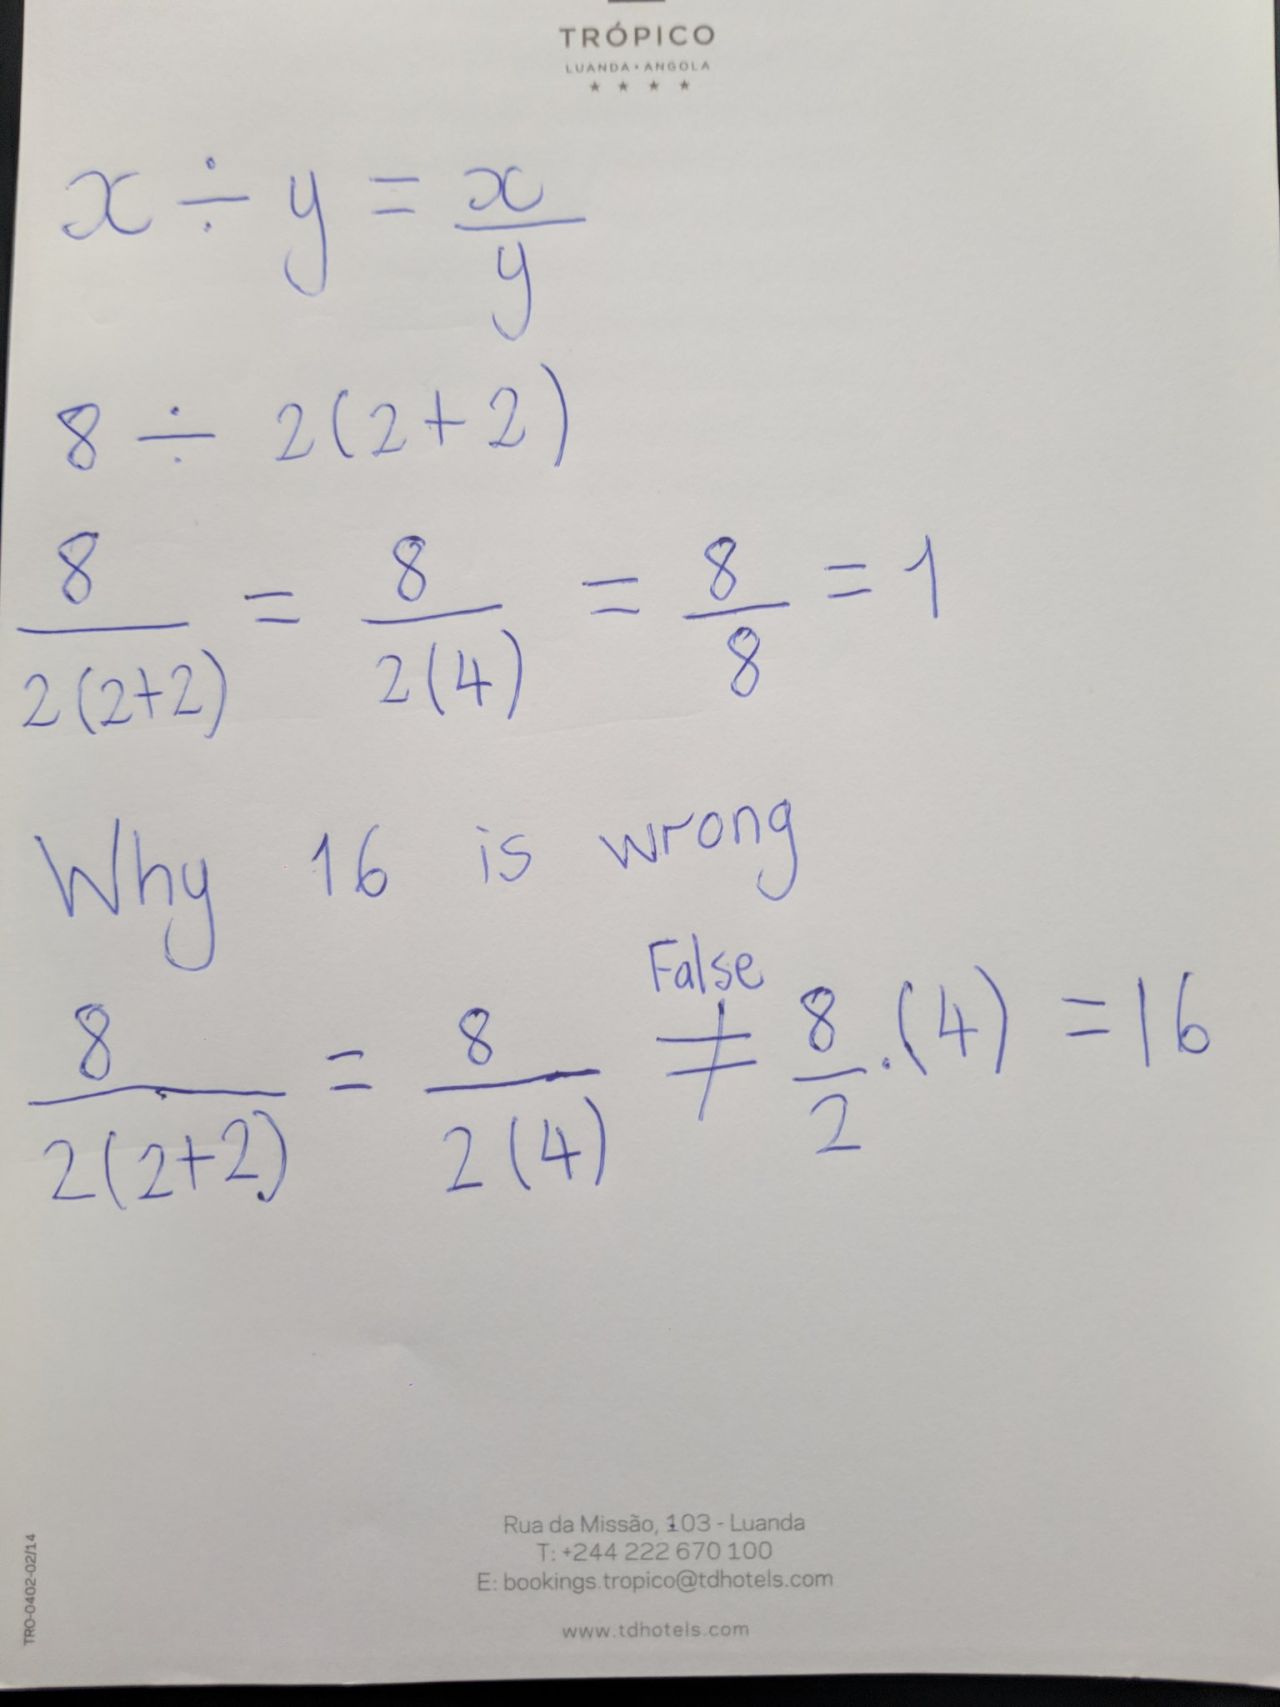 TRÓPICO
LUANDA • ANGOLA
★ ★ ★ ★
x ÷ y = x/y
8 ÷ 2(2+2)
8/2(2+2) = 8/2(4) = 8/8 = 1
Why 16 is wrong
False
8/2(2+2) = 8/2(4) ≠ 8/2 . (4) = 16
Rua da Missão, 103 - Luanda
T: +244 222 670 100
E: bookings.tropico@tdhotels.com
www.tdhotels.com
TRO-0402-02/14